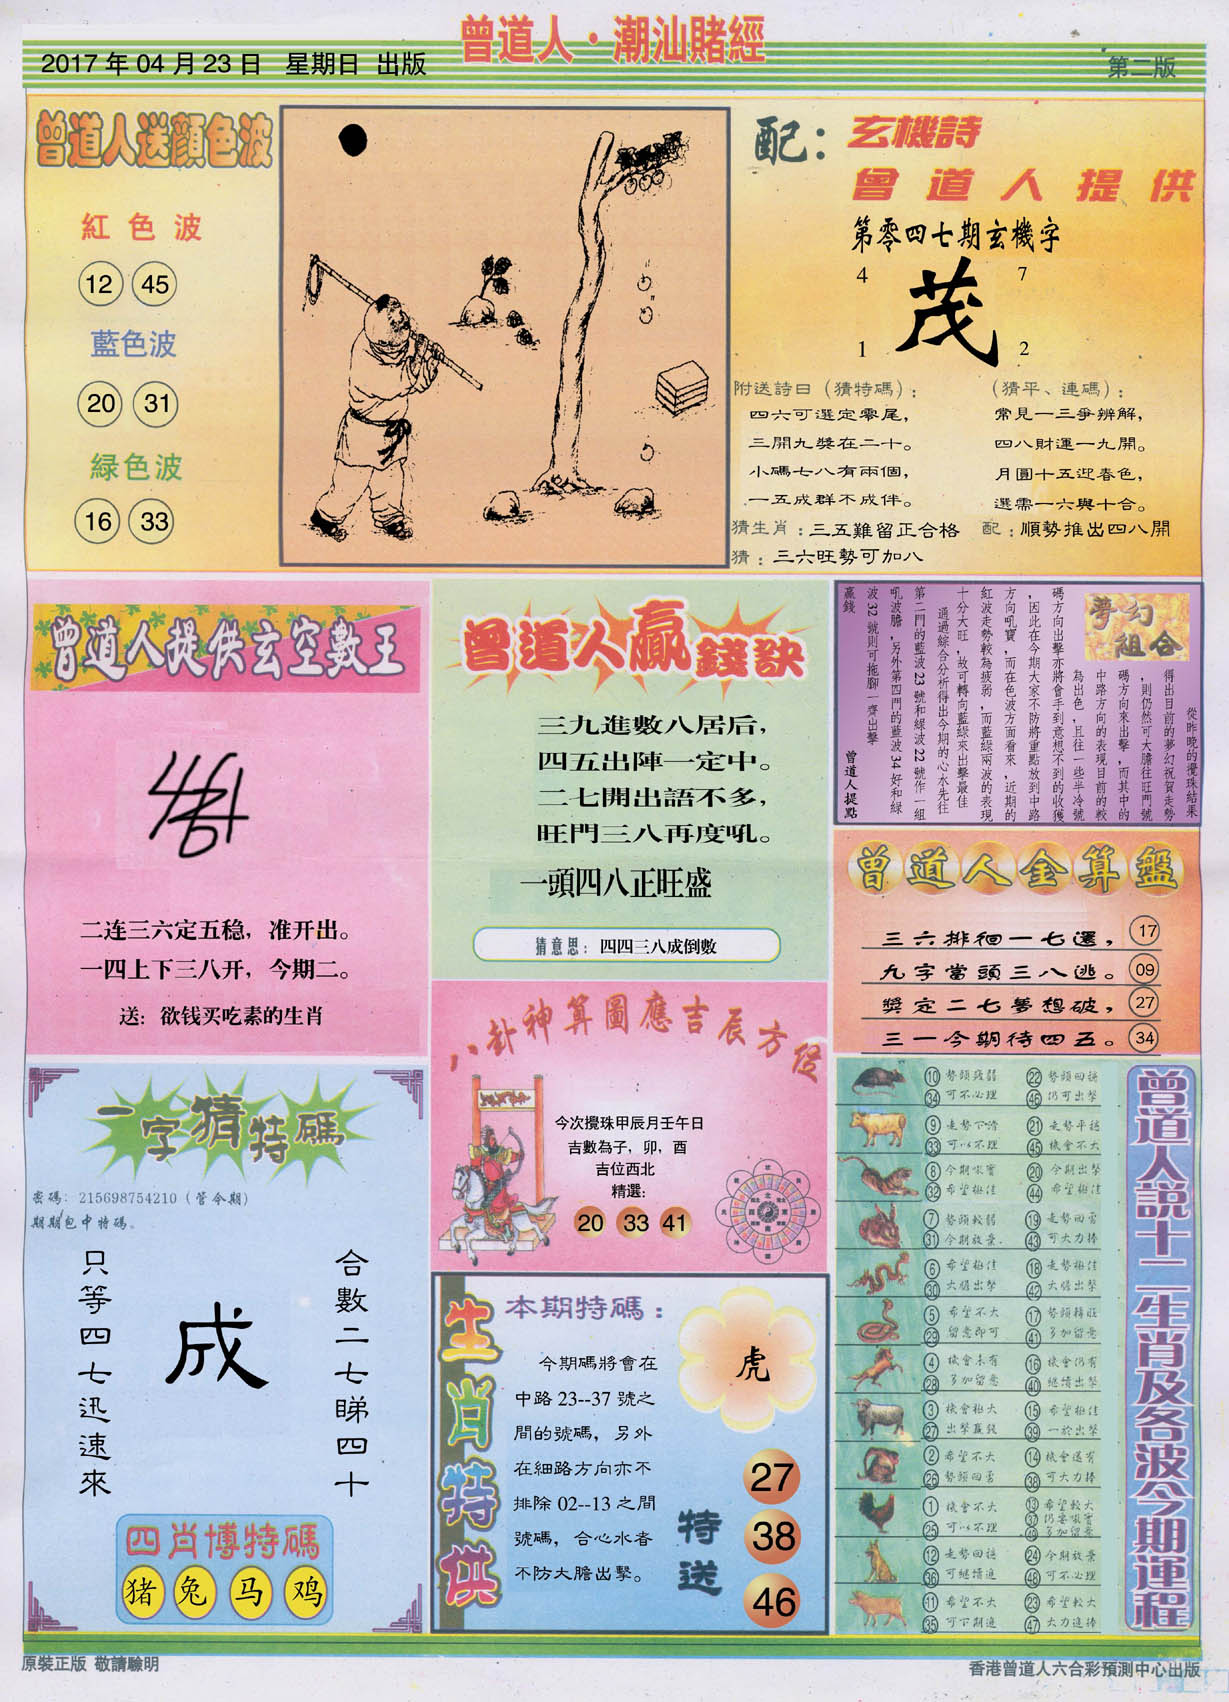 曾道人·潮汕賭經
2017 年 04 月 23 日 星期日 出版
第二版
曾道人送顏色波
紅色波
12 45
藍色波
20 31
緑色波
16 33
配：玄機詩
曾道人提供
第零四七期玄機字
4 7
茂
1 2
附送詩曰（猜特碼）：
四六可選定零尾，
三開九獎在二十。
小碼七八有兩個，
一五成群不成伴。
（猜平、連碼）：
常見一三爭辨解，
四八財運一九開。
月圓十五迎春色，
選需一六與十合。
猜生肖：三五難留正合格
配：順勢推出四八開
猜：三六旺勢可加八
曾道人提供玄空數王
二连三六定五稳，准开出。
一四上下三八开，今期二。
送：欲钱买吃素的生肖
曾道人贏錢訣
三九進數八居后，
四五出陣一定中。
二七開出語不多，
旺門三八再度吼。
一頭四八正旺盛
猜意思：四四三八成倒數
夢幻組合
從昨晚的攪珠結果
得出目前的夢幻祝賀走勢
，則仍然可大膽往旺門號
碼方向來出擊，而其中的
中路方向的表現目前的較
為出色，且往一些半冷號
碼方向出擊亦將會手到意想不到的收獲
，因此在今期大家不防將重點放到中路
方向吼寶，而在色波方面看來，近期的
紅波走勢較為疲弱，而藍綠兩波的表現
十分大旺，故可轉向藍綠來出擊最佳
通過綜合分析得出今期的心水先往
第二門的藍波23號和綠波22號作一組
吼波膽，另外第四門的藍波34好和綠
波32號則可拖腳一齊出擊
贏錢
曾道人提點
曾道人金算盤
三六排徊一七選， 17
九字當頭三八逃。 09
獎定二七夢想破， 27
三一今期待四五。 34
八卦神算圖應吉辰方位
今次攪珠甲辰月壬午日
吉數為子，卯，酉
吉位西北
精選：
20 33 41
一字猜特碼
密碼：215698754210（管今期）
期期包中特碼。
只等四七迅速來
成
合數二七睇四十
四肖博特碼
猪 兔 马 鸡
生肖特供
本期特碼：
今期碼將會在
中路 23--37 號之
間的號碼，另外
在細路方向亦不
排除 02--13 之間
號碼，合心水者
不防大膽出擊。
虎
特送
27
38
46
曾道人説十二生肖及各波今期運程
10 勢頭疲弱 22 勢頭回揚
34 可不必理 46 仍可出擊
9 走勢下滑 21 走勢平穩
33 可以不理 45 機會不大
8 今期吼寶 20 今期出擊
32 希望極佳 44 希望極佳
7 勢頭較弱 19 走勢回勇
31 今期放棄 43 可大力捧
6 希望極佳 18 走勢極佳
30 大膽出擊 42 大膽出擊
5 希望不大 17 勢頭轉旺
29 留意即可 41 多加留意
4 機會未有 16 機會仍有
28 多加留意 40 繼續出擊
3 機會極大 15 希望極佳
27 出擊贏錢 39 一於出擊
2 希望不大 14 機會還有
26 勢頭回勇 38 可大力捧
1 機會不大 13 希望較大
25 可以不理 37 仍要吼寶
49 多加留意
12 走勢回穩 24 今期放棄
36 可繼續追 48 可不必理
11 希望不大 23 希望較大
35 可下期追 47 大力追捧
原裝正版 敬請驗明
香港曾道人六合彩預測中心出版